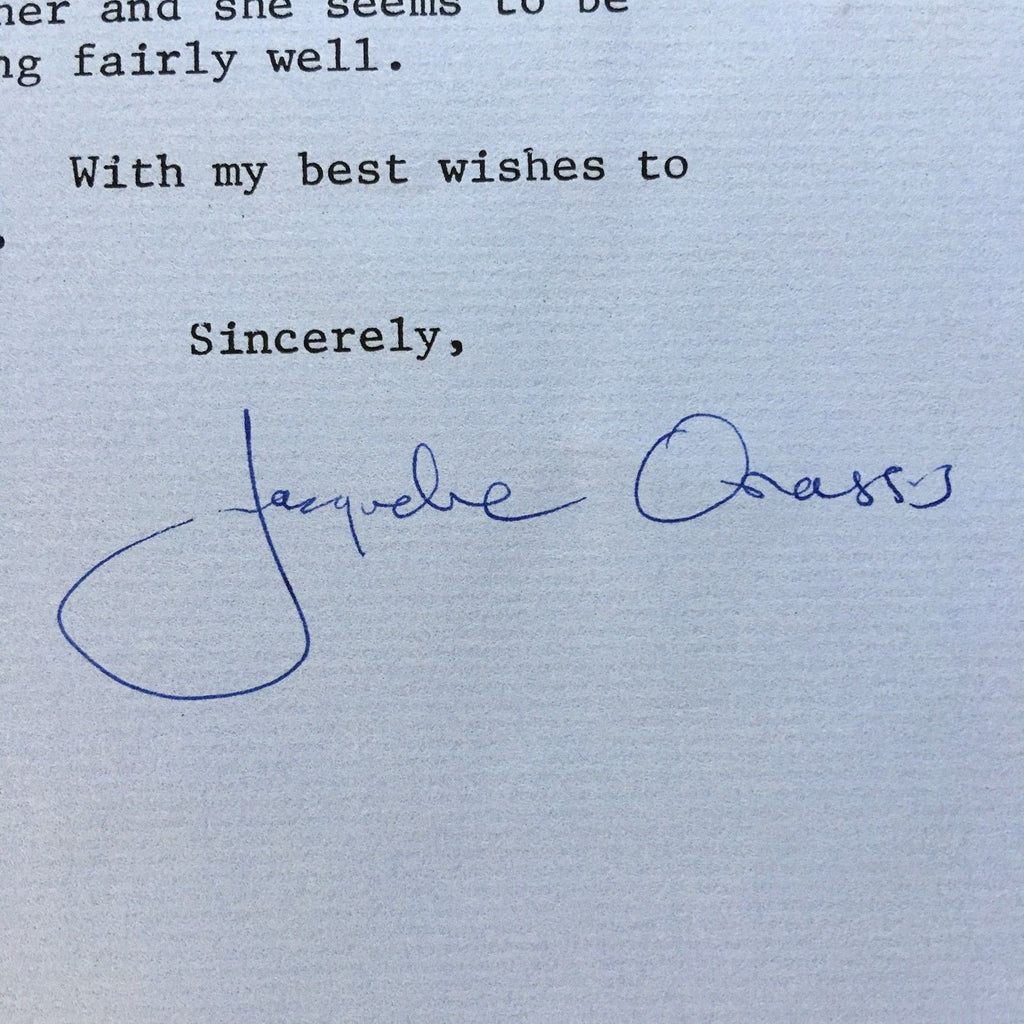 her and she seems to be
ng fairly well.
With my best wishes to
.
Sincerely,
Jacqueline Onassis